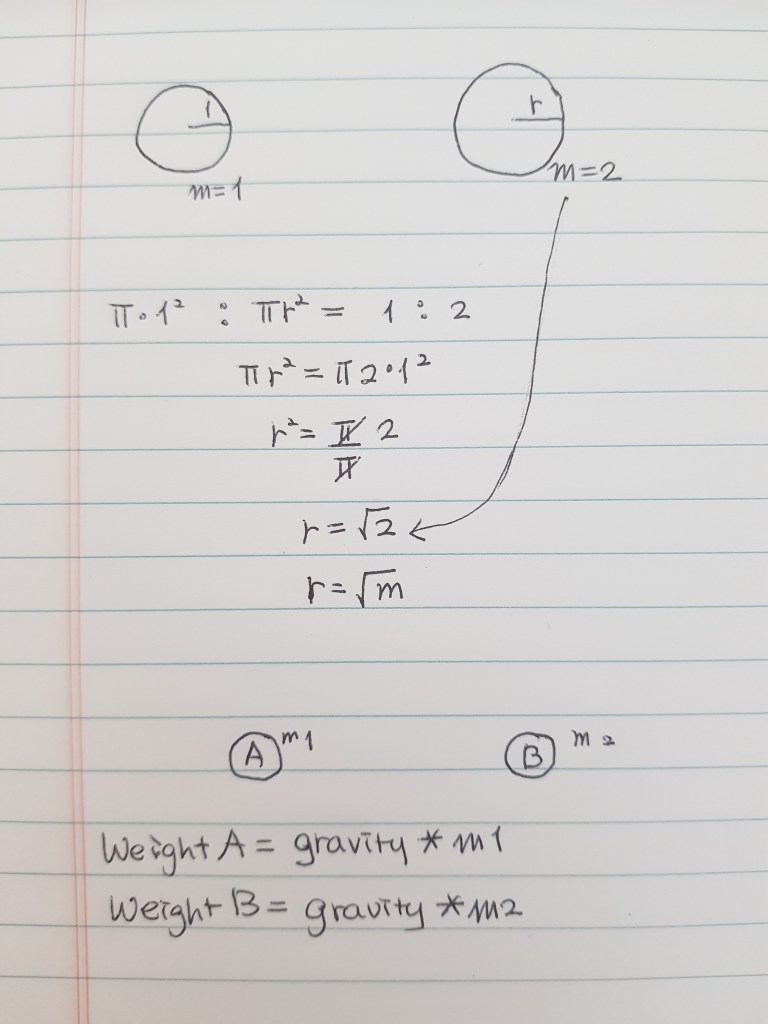 1 r
m=1 m=2
π·1² : πr² = 1 : 2
πr² = π2·1²
r² = π/π 2
r = √2
r = √m
A m1 B m2
Weight A = gravity * m1
Weight B = gravity * m2